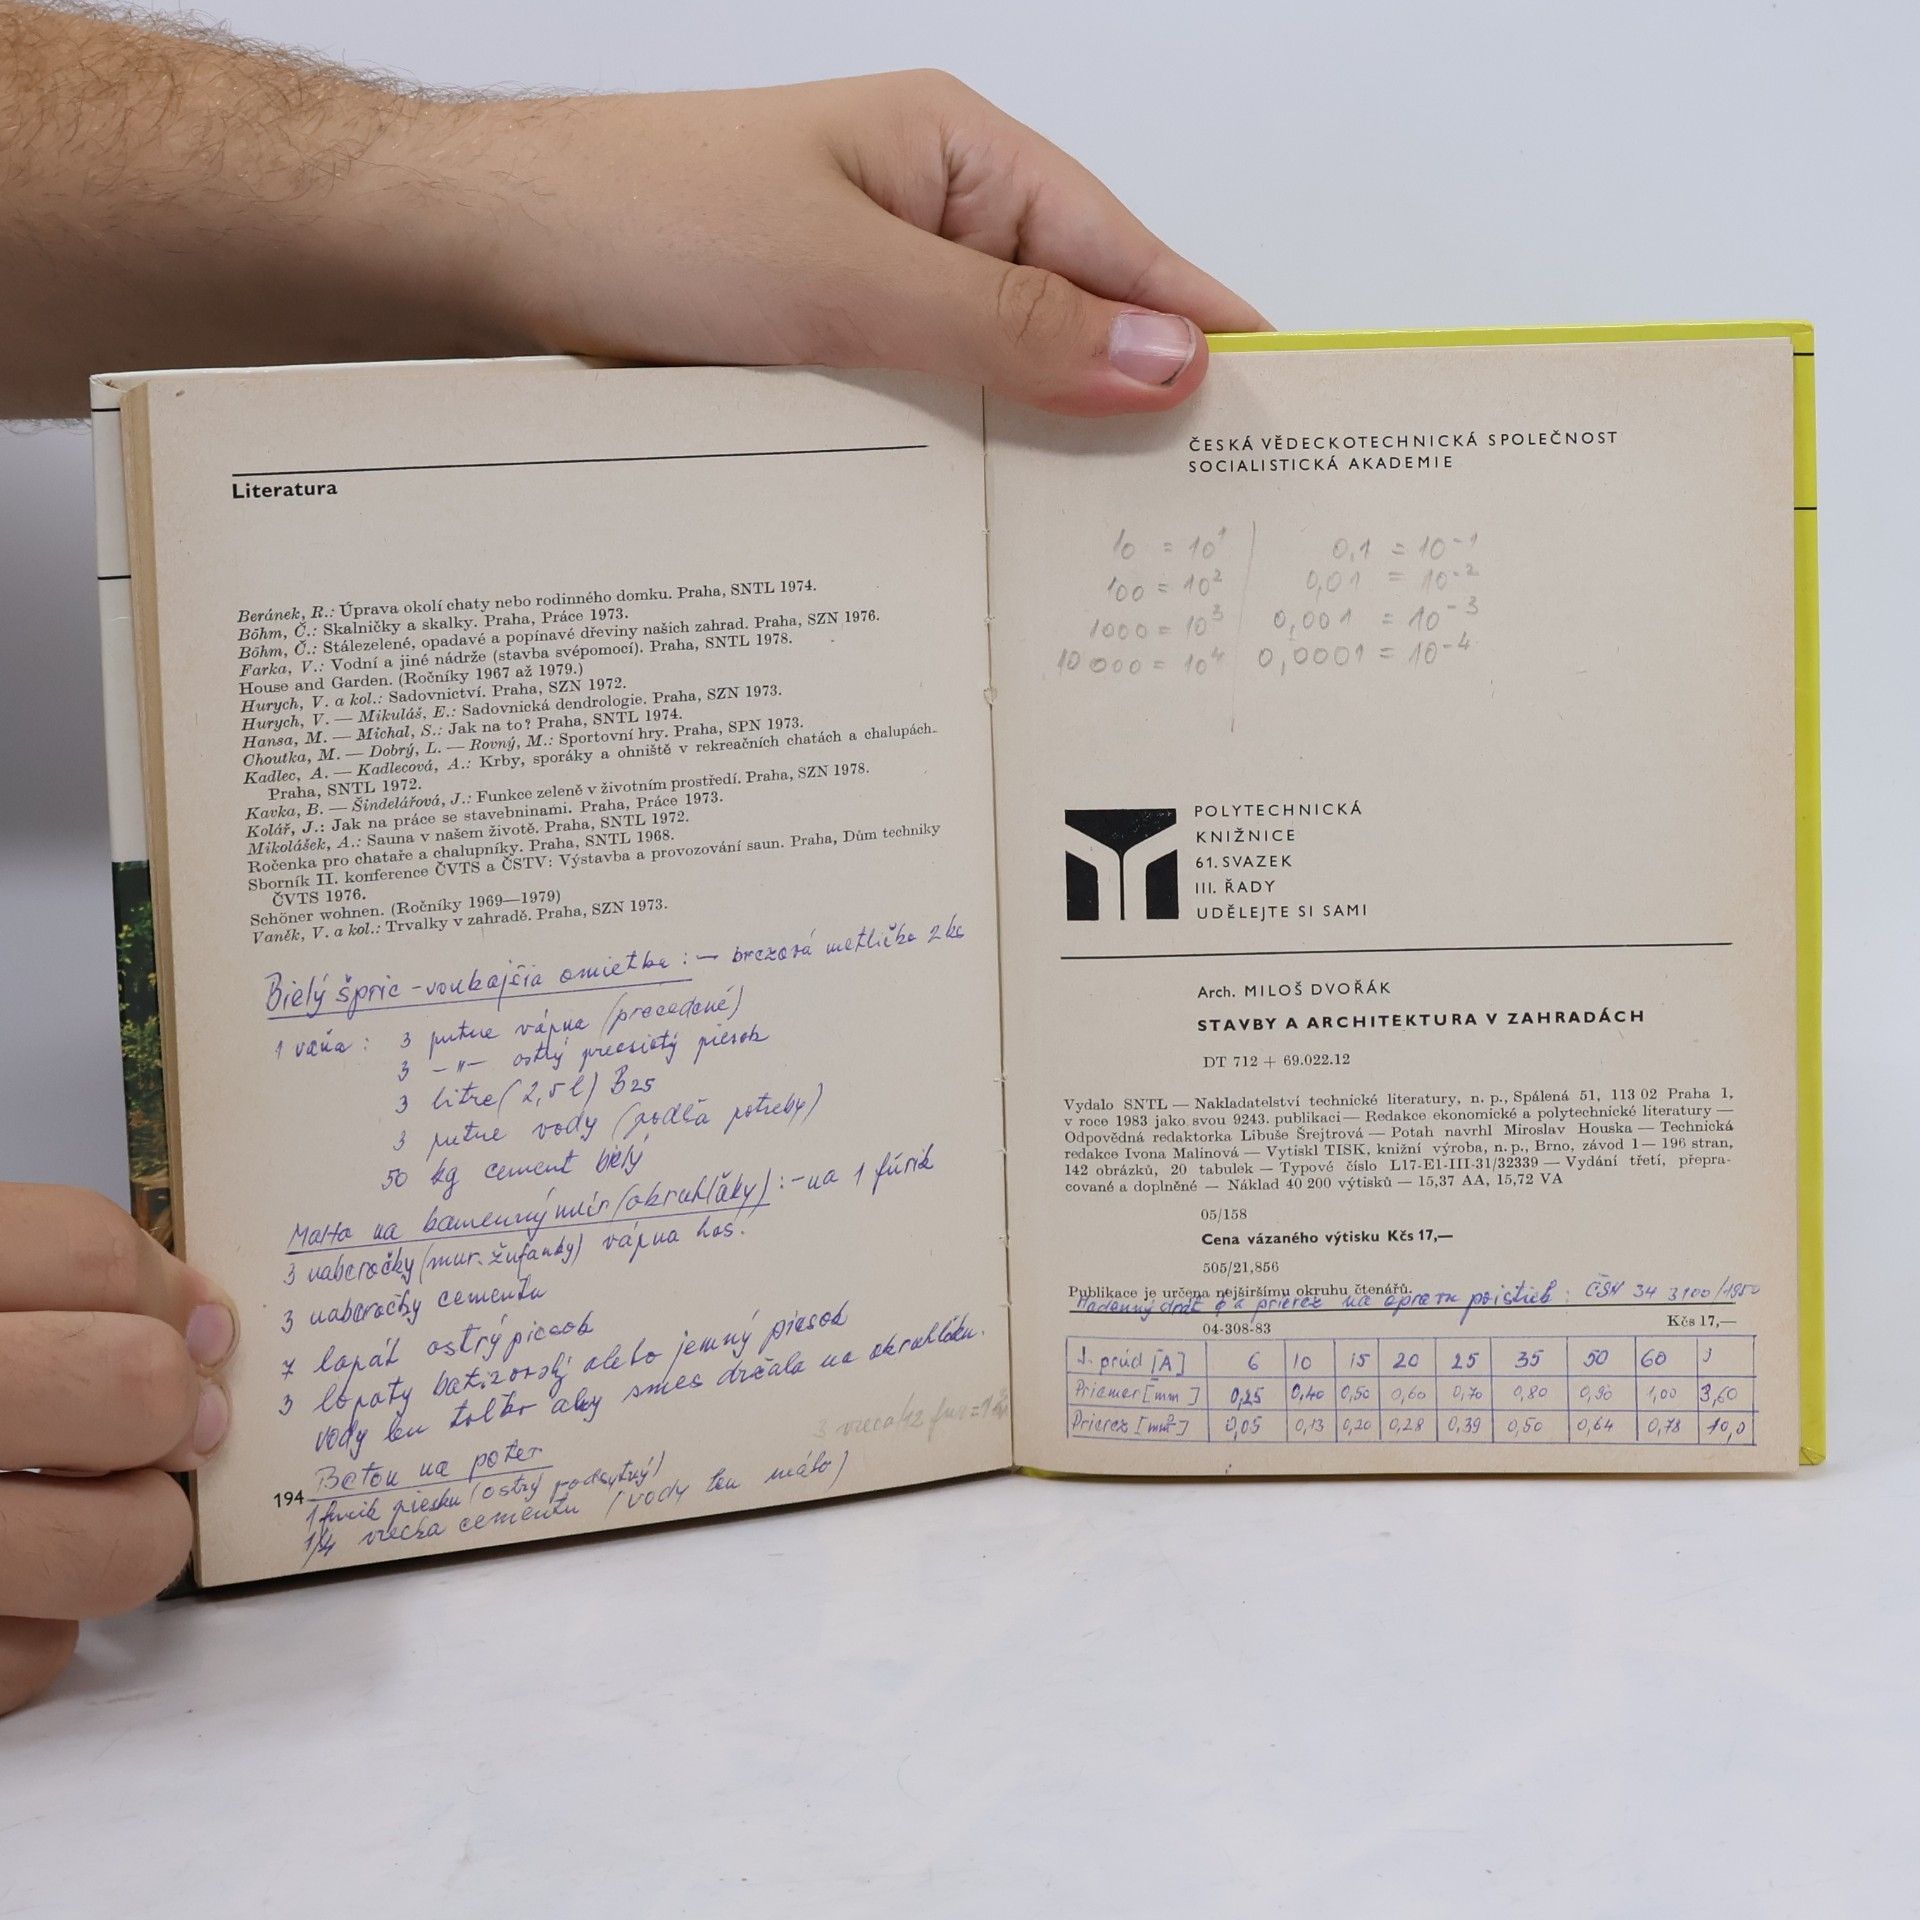 Literatura
Beránek, R.: Úprava okolí chaty nebo rodinného domku. Praha, SNTL 1974.
Böhm, Č.: Skalničky a skalky. Praha, Práce 1973.
Böhm, Č.: Stálezelené, opadavé a popínavé dřeviny našich zahrad. Praha, SZN 1976.
Farka, V.: Vodní a jiné nádrže (stavba svépomocí). Praha, SNTL 1978.
House and Garden. (Ročníky 1967 až 1979.)
Hurych, V. a kol.: Sadovnictví. Praha, SZN 1972.
Hurych, V. — Mikuláš, E.: Sadovnická dendrologie. Praha, SZN 1973.
Hansa, M. — Michal, S.: Jak na to? Praha, SNTL 1974.
Choutka, M. — Dobrý, L. — Rovný, M.: Sportovní hry. Praha, SPN 1973.
Kadlec, A. — Kadlecová, A.: Krby, sporáky a ohniště v rekreačních chatách a chalupách.
Praha, SNTL 1972.
Kavka, B. — Šindelářová, J.: Funkce zeleně v životním prostředí. Praha, SZN 1978.
Kolář, J.: Jak na práce se stavebninami. Praha, Práce 1973.
Mikolášek, A.: Sauna v našem životě. Praha, SNTL 1972.
Ročenka pro chataře a chalupníky. Praha, SNTL 1968.
Sborník II. konference ČVTS a ČSTV: Výstavba a provozování saun. Praha, Dům techniky
ČVTS 1976.
Schöner wohnen. (Ročníky 1969—1979)
Vaněk, V. a kol.: Trvalky v zahradě. Praha, SZN 1973.
Bielý špric - vonkajšia omietka : — brezová metlička 2 ks
1 vaňa : 3 putne vápna (precedené)
3 -"- ostrý preosiatý piesok
3 litre (2,5 l) B25
3 putne vody (podľa potreby)
50 kg cement biely
Malta na kamenný múr (okruhľáky) : - na 1 fúrik
3 naberačky (mur. žufanky) vápna has.
3 naberačky cementu
7 lopát ostrý piesok
3 lopaty alebo jemný piesok
vody len toľko aby smes držala na okruhliku.
3 vrecia
Beton na poter
194
1 furik piesku (ostrý podsytný)
1/4 vrecka cementu (vody len málo)
ČESKÁ VĚDECKOTECHNICKÁ SPOLEČNOST
SOCIALISTICKÁ AKADEMIE
10 = 10¹ 0,1 = 10⁻¹
100 = 10² 0,01 = 10⁻²
1000 = 10³ 0,001 = 10⁻³
10 000 = 10⁴ 0,0001 = 10⁻⁴
POLYTECHNICKÁ
KNIŽNICE
61. SVAZEK
III. ŘADY
UDĚLEJTE SI SAMI
Arch. MILOŠ DVOŘÁK
STAVBY A ARCHITEKTURA V ZAHRADÁCH
DT 712 + 69.022.12
Vydalo SNTL — Nakladatelství technické literatury, n. p., Spálená 51, 113 02 Praha 1,
v roce 1983 jako svou 9243. publikaci — Redakce ekonomické a polytechnické literatury —
Odpovědná redaktorka Libuše Šrejtrová — Potah navrhl Miroslav Houska — Technická
redakce Ivona Malinová — Vytiskl TISK, knižní výroba, n. p., Brno, závod 1 — 196 stran,
142 obrázků, 20 tabulek — Typové číslo L17-E1-III-31/32339 — Vydání třetí, přepra-
cované a doplněné — Náklad 40 200 výtisků — 15,37 AA, 15,72 VA
05/158
Cena vázaného výtisku Kčs 17,—
505/21,856
Publikace je určena nejširšímu okruhu čtenářů.
Medenný drát ϕ a prierez na opravu poistiek : ČSN 34 3100/1950
04-308-83 Kčs 17,—
J. prúd [A] 6 10 15 20 25 35 50 60
Priemer [mm] 0,25 0,40 0,50 0,60 0,70 0,80 0,90 1,00 3,60
Prierez [mm²] 0,05 0,13 0,20 0,28 0,39 0,50 0,64 0,78 10,0